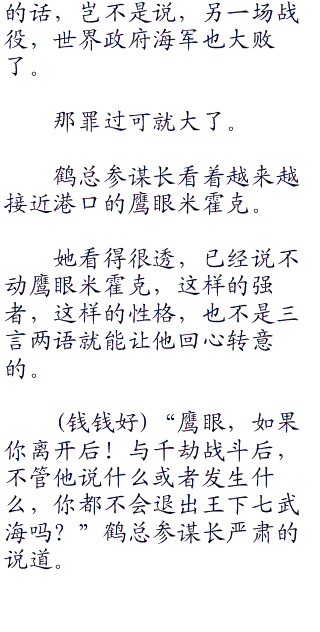 的话，岂不是说，另一场战
役，世界政府海军也大败
了。
那罪过可就大了。
鹤总参谋长看着越来越
接近港口的鹰眼米霍克。
她看得很透，已经说不
动鹰眼米霍克，这样的强
者，这样的性格，也不是三
言两语就能让他回心转意
的。
(钱钱好)“鹰眼，如果
你离开后！与千劫战斗后，
不管他说什么或者发生什
么，你都不会退出王下七武
海吗？”鹤总参谋长严肃的
说道。